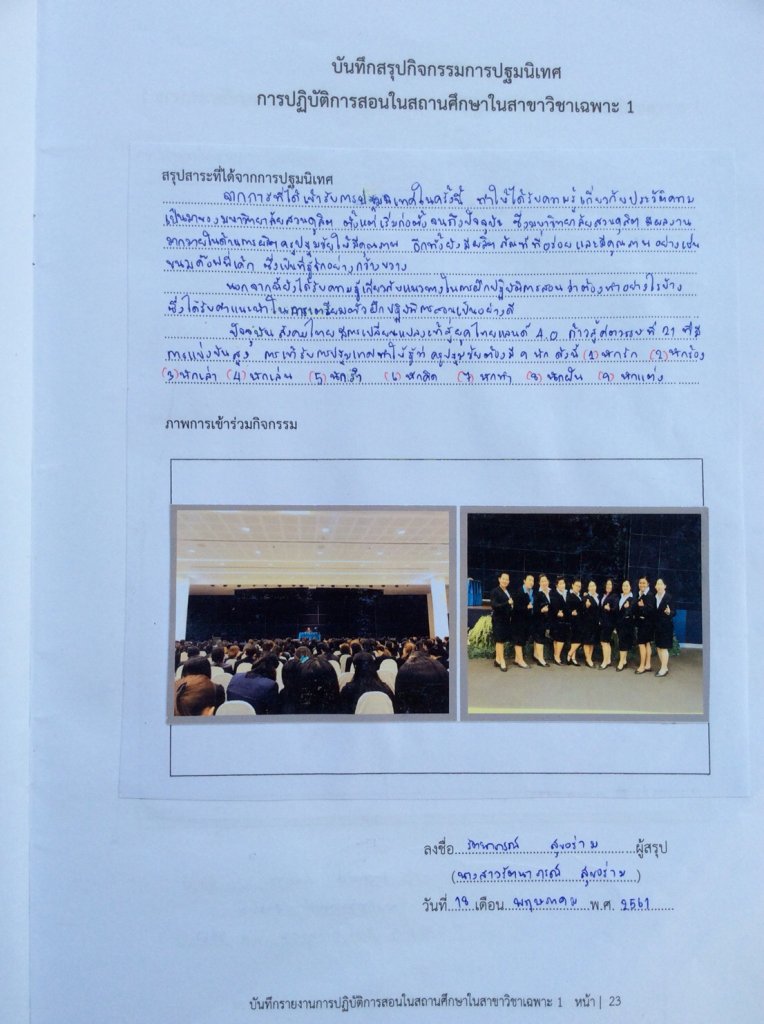 บันทึกสรุปกิจกรรมการปฐมนิเทศ
การปฏิบัติการสอนในสถานศึกษาในสาขาวิชาเฉพาะ 1
สรุปสาระที่ได้จากการปฐมนิเทศ
จากการที่ได้เข้ารับการปฐมนิเทศในครั้งนี้ ทำให้ได้รับความรู้เกี่ยวกับประวัติความ
เป็นมาของมหาวิทยาลัยสวนดุสิต ตั้งแต่เริ่มก่อตั้งจนถึงปัจจุบัน ซึ่งมหาวิทยาลัยสวนดุสิตมีผลงาน
มากมายในด้านการผลิตครูปฐมวัยให้มีคุณภาพ อีกทั้งยังมีผลิตภัณฑ์ที่อร่อยและมีคุณภาพอย่างเช่น
ขนมคัพเค้ก ซึ่งเป็นที่รู้จักอย่างกว้างขวาง
นอกจากนี้ยังได้รับความรู้เกี่ยวกับแนวทางในการฝึกปฏิบัติการสอน ว่าต้องทำอย่างไรบ้าง
ซึ่งได้รับคำแนะนำในการเตรียมตัวฝึกปฏิบัติการสอนเป็นอย่างดี
ปัจจุบันสังคมไทยมีการเปลี่ยนแปลงเข้าสู่ยุคไทยแลนด์ 4.0 ก้าวสู่ศตวรรษที่ 21 ที่มี
การแข่งขันสูง การเข้ารับการปฐมนิเทศทำให้รู้ว่า ครูปฐมวัยต้องมี ๙ นัก ดังนี้ (1) นักรัก (2) นักร้อง
(3) นักเล่า (4) นักเล่น (5) นักรำ (6) นักคิด (7) นักทำ (8) นักฝัน (9) นักแต่ง
ภาพการเข้าร่วมกิจกรรม
ลงชื่อ รัตนาภรณ์ สุขอร่าม ผู้สรุป
(นางสาวรัตนาภรณ์ สุขอร่าม)
วันที่ 18 เดือน พฤษภาคม พ.ศ. 2561
บันทึกรายงานการปฏิบัติการสอนในสถานศึกษาในสาขาวิชาเฉพาะ 1 หน้า | 23